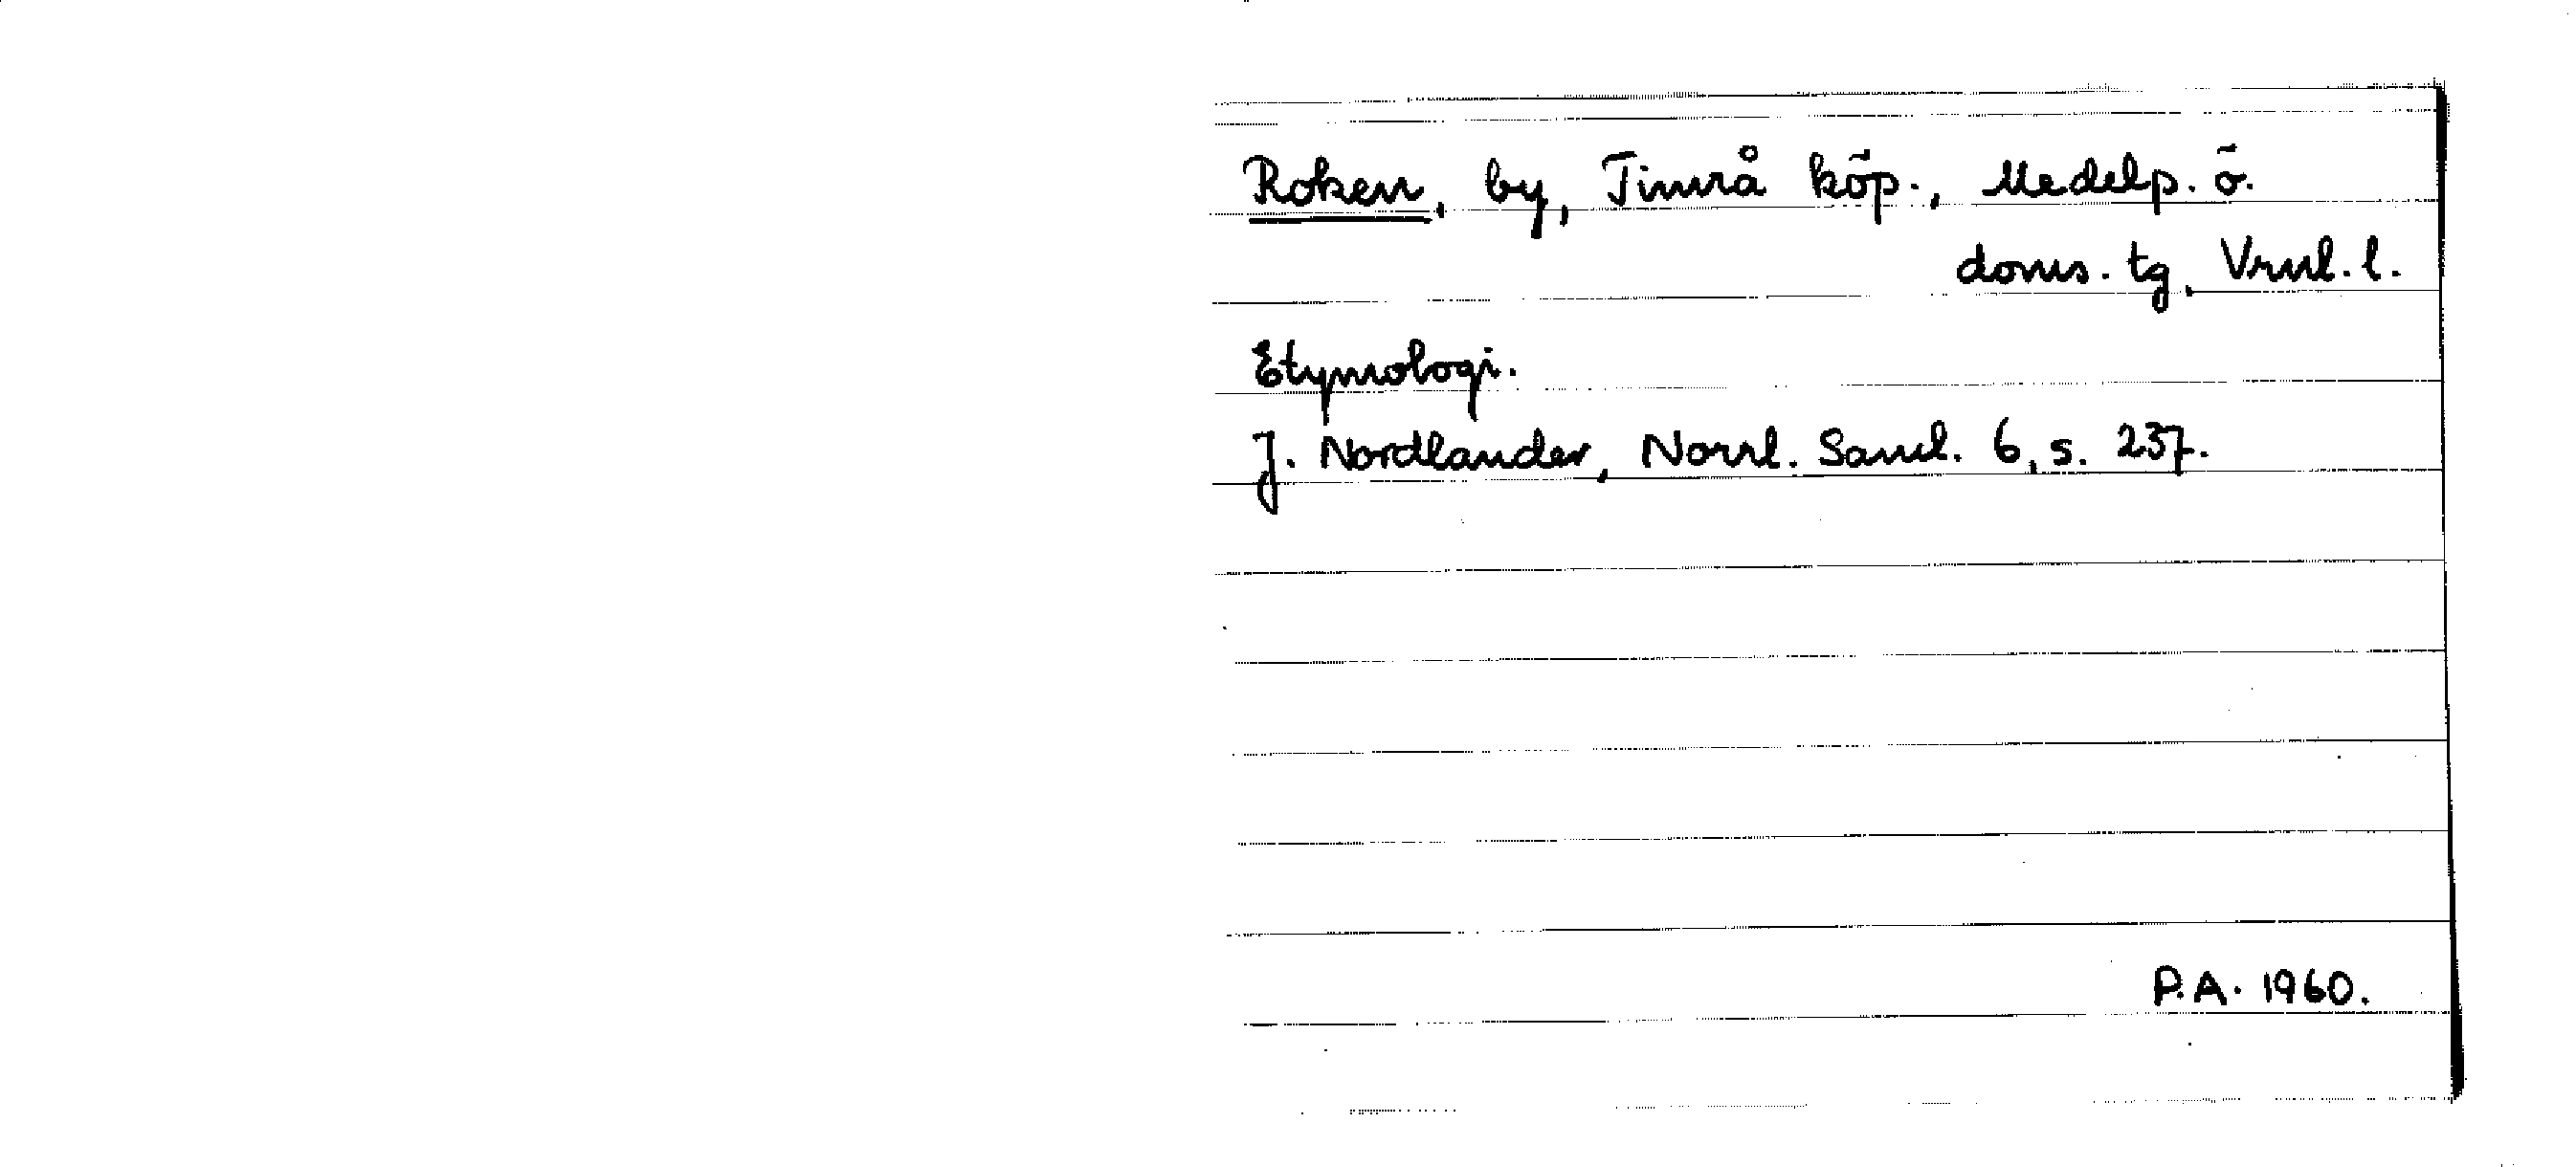 Roken, by, Timrå köp., Medelp. ö.
doms. tg, Vrnl. l.
Etymologi.
J. Nordlander, Norrl. Saml. 6, s. 237.
P.A. 1960.